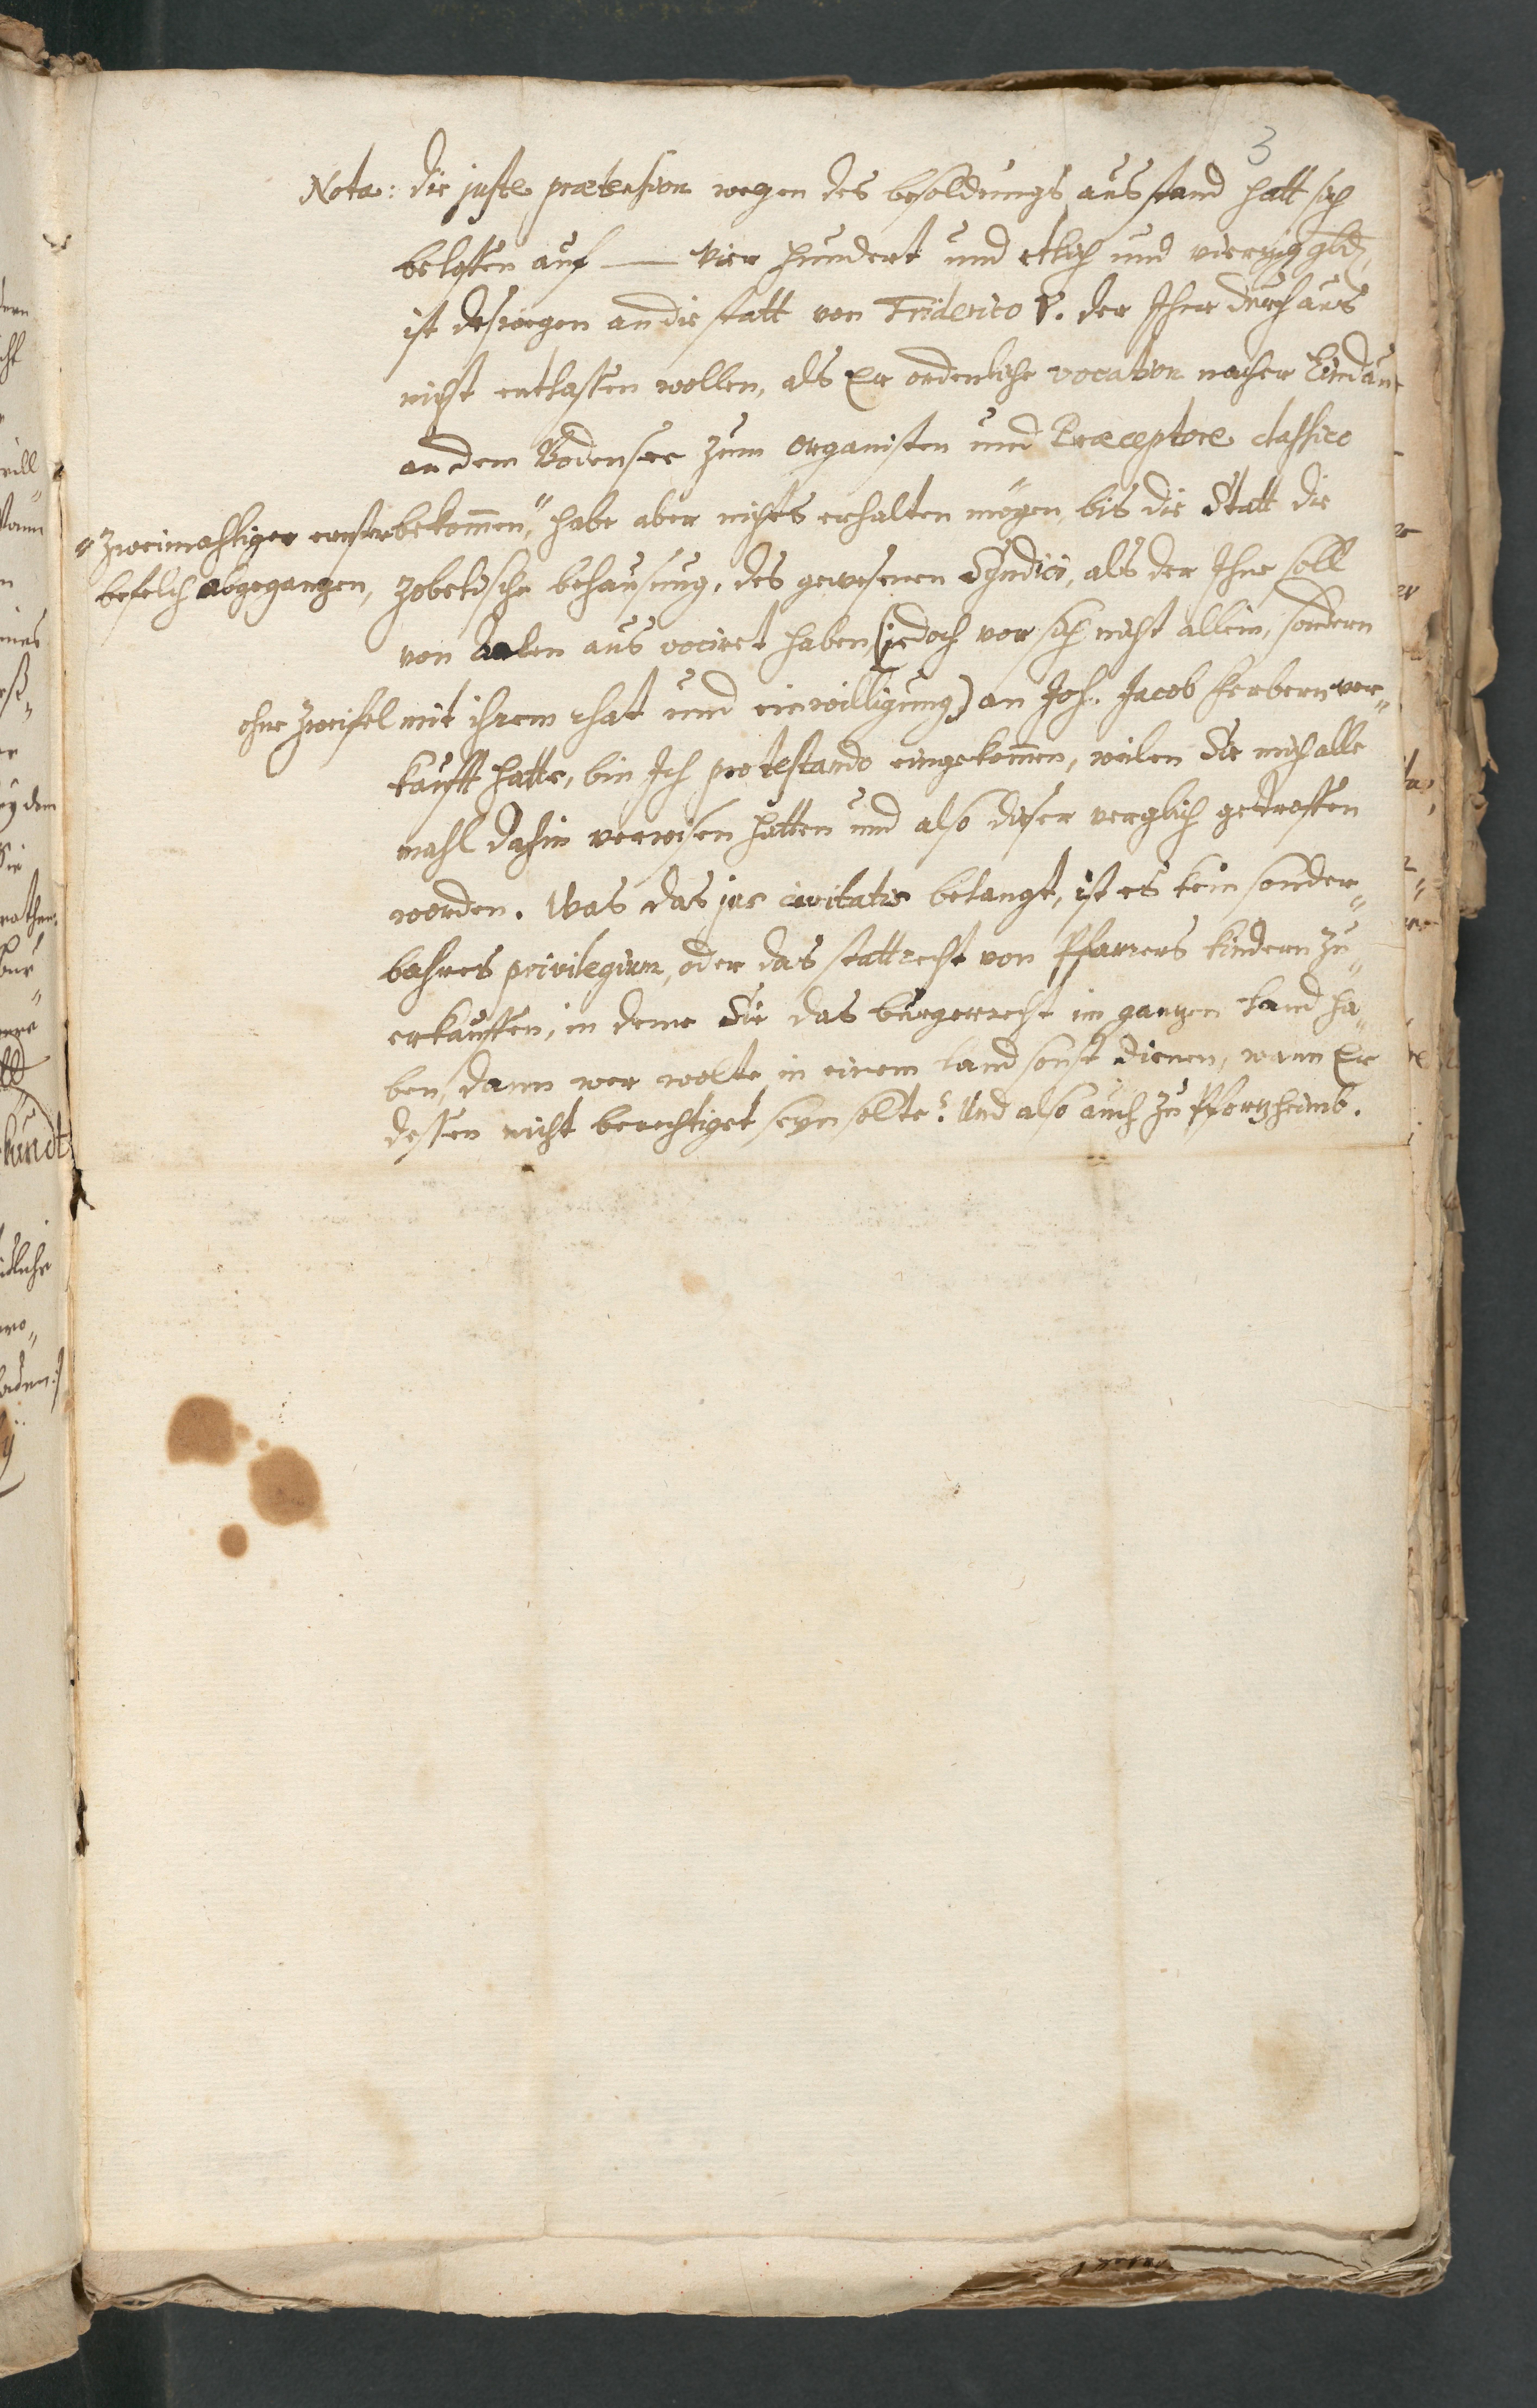 3
Nota: die juste prætension wegen des besoldungs ausstand hatt sich
beloffen auf — Vier hundert und etlich und viertzig gld,
ist deswegen an die statt von Friderico V. der Ihne durchaus
nicht entlassen wollen, als Er ordentliche vocation nacher Lindau
an dem Bodensee zum Organisten und Præceptore classico
bekommen," habe aber nichts erhalten mögen, bis die Statt die
" zweimahliger ernster
befelch abgegangen,
Zobelische behausung, des gewesenen Syndici, als der Ihne soll
von Aalen aus vociret haben (jedoch vor sich nicht allein, sondern
ohne zweifel mit ihrem rhat und einwilligung) an Joh. Jacob Ferbern ver„
kaufft hatte, bin Ich protestando eingekommen, weilen Sie mich alle
mahl dahin verwisen hatten und also diser verglich getroffen
worden. Was das jus civitatis belangt, ist es kein sonder„
bahres privilegium, oder das stattrecht von Pfarrers kindern zu„
erkauffen, in deme Sie das burgerrecht im gantzen land ha„
ben, dann wer wolte in einem land sonst dienen, wann Er
dessen nicht berechtiget seyn solte? Und also auch zu Pfortzheimb.